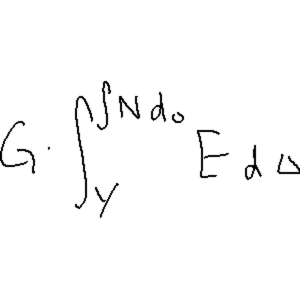 G · ∫_Y^{∫ N d o} E d Δ